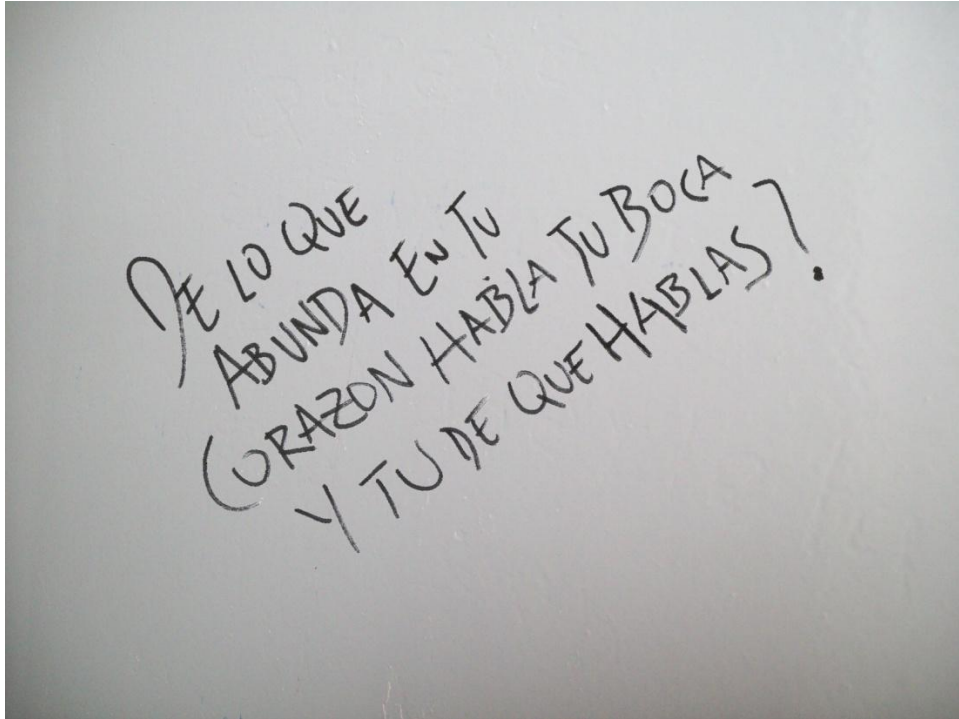 DE LO QUE
ABUNDA EN TU
CORAZON HABLA TU BOCA
Y TU DE QUE HABLAS?